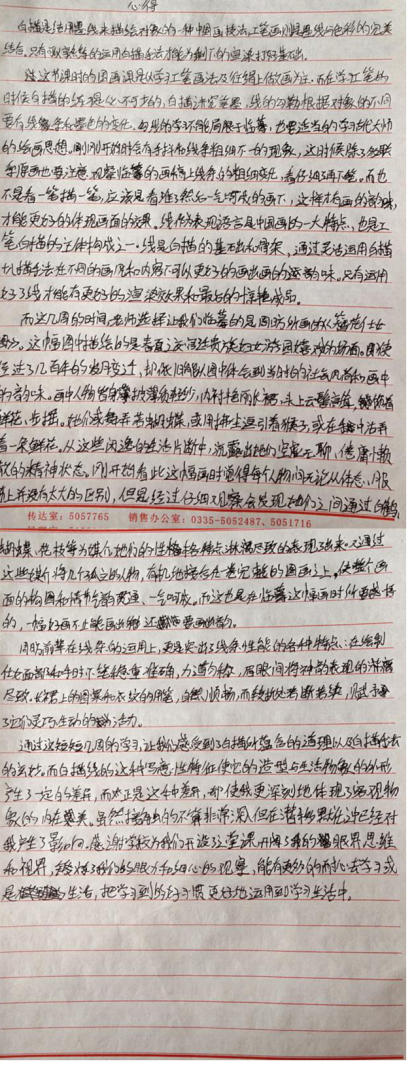 心得
白描是指用墨线来描绘对象的一种中国画技法。工笔画则是墨线与色彩的完美
结合。只有熟练的运用白描手法才能为剩下的渲染打好基础。
这节课时的国画课是从学工笔画法及作绢上做画方。而在学工笔的
时候白描的练习是必不可少的，白描讲究笔墨，线的勾勒根据对象的不同
要有线条和墨色的变化。勾线的学习不能局限于临摹，也要适当的学习优大师
的绘画思想。刚刚开始时会有手抖和线条粗细不一的现象，这时候除了多联
系原画也要注意观察临摹的画稿上线条的粗细变化，看仔细再下笔。而也
不是看一笔描一笔，应该是看准了然后一气呵成的画下，这样才有画的韵味，
才能更好的体现画面的效果。线作为表现语言是中国画的一大特点，也是工
笔白描的主体构成之一。线是白描的基础和骨架，通过灵活运用白描
勾描手法在不同的画作和内容下可以更好的画出画的逐韵味。只有运用
好了线才能有更好的渲染效果和最后的惊艳成品。
而这几周的时间，老师选择让我们临摹的是周昉所画的《簪花仕女
图》。这幅图中描绘的是春夏之交贵族妇女游园嬉戏的场面。即使
经过了几百年的岁月变迁，却依旧能从图中体会到当时的社会风貌和画中
的韵味。画中人物皆身穿披薄纱轻纱，内衬艳丽长裙，头上云髻高耸，簪饰着
鲜花、步摇。她们或舞弄着蝴蝶，或用拂尘逗引着猴子，或在手中沾弄
着一朵鲜花，从这些闲逸的生活片断中，流露出她们空虚无聊、倦庸懒
散的精神状态。刚开始看此这幅画时觉得每个人物间无论从体态、服
饰上并没有太大的区别，但是经过仔细观察会发现她们之间通过白鹤、
传达室：5057765 销售办公室：0335-5052487、5051716
蝴蝶、花枝等为媒介她们的性格各特点淋漓尽致的表现了出来。又通过
这些媒介将几个孤立的人物，有机地接合在卷完整的图画之上。使整个画
面的构图和情节前后贯通、一气呵成。而这也是在临摹这幅画时所要选择
的，一幅好画不止能画出形还能画出韵。
周昉前辈在线条的运用上，更是突出了线条性能的各种特点：在绘制
仕女面部和手时下笔稳重准确，力道匀称，眉眼间将神韵表现的淋漓
尽致。衣裙上的图案和衣纹的用笔，自然顺畅，而转折处若断若续，赋予
了它们灵巧生动的活力。
通过这短短几周的学习，让我们感受到了白描所蕴含的道理以及白描手法
的玄妙。而白描线的这种写意性特征使它的造型与生活物象的外形
产生了一定的差异，而正是这种差异，却使我更深刻地体现了临现物
象的内在美。虽然接触的不算非常深入但在潜移默化中已经对
我产生了影响。感谢学校为我们开设了这堂课，开阔了我的眼界思维
和视界，锻炼了我们的眼力和细心的观察，能有更多的耐心去学习或
是生活，把学习到的好习惯更好地运用到学习生活中。